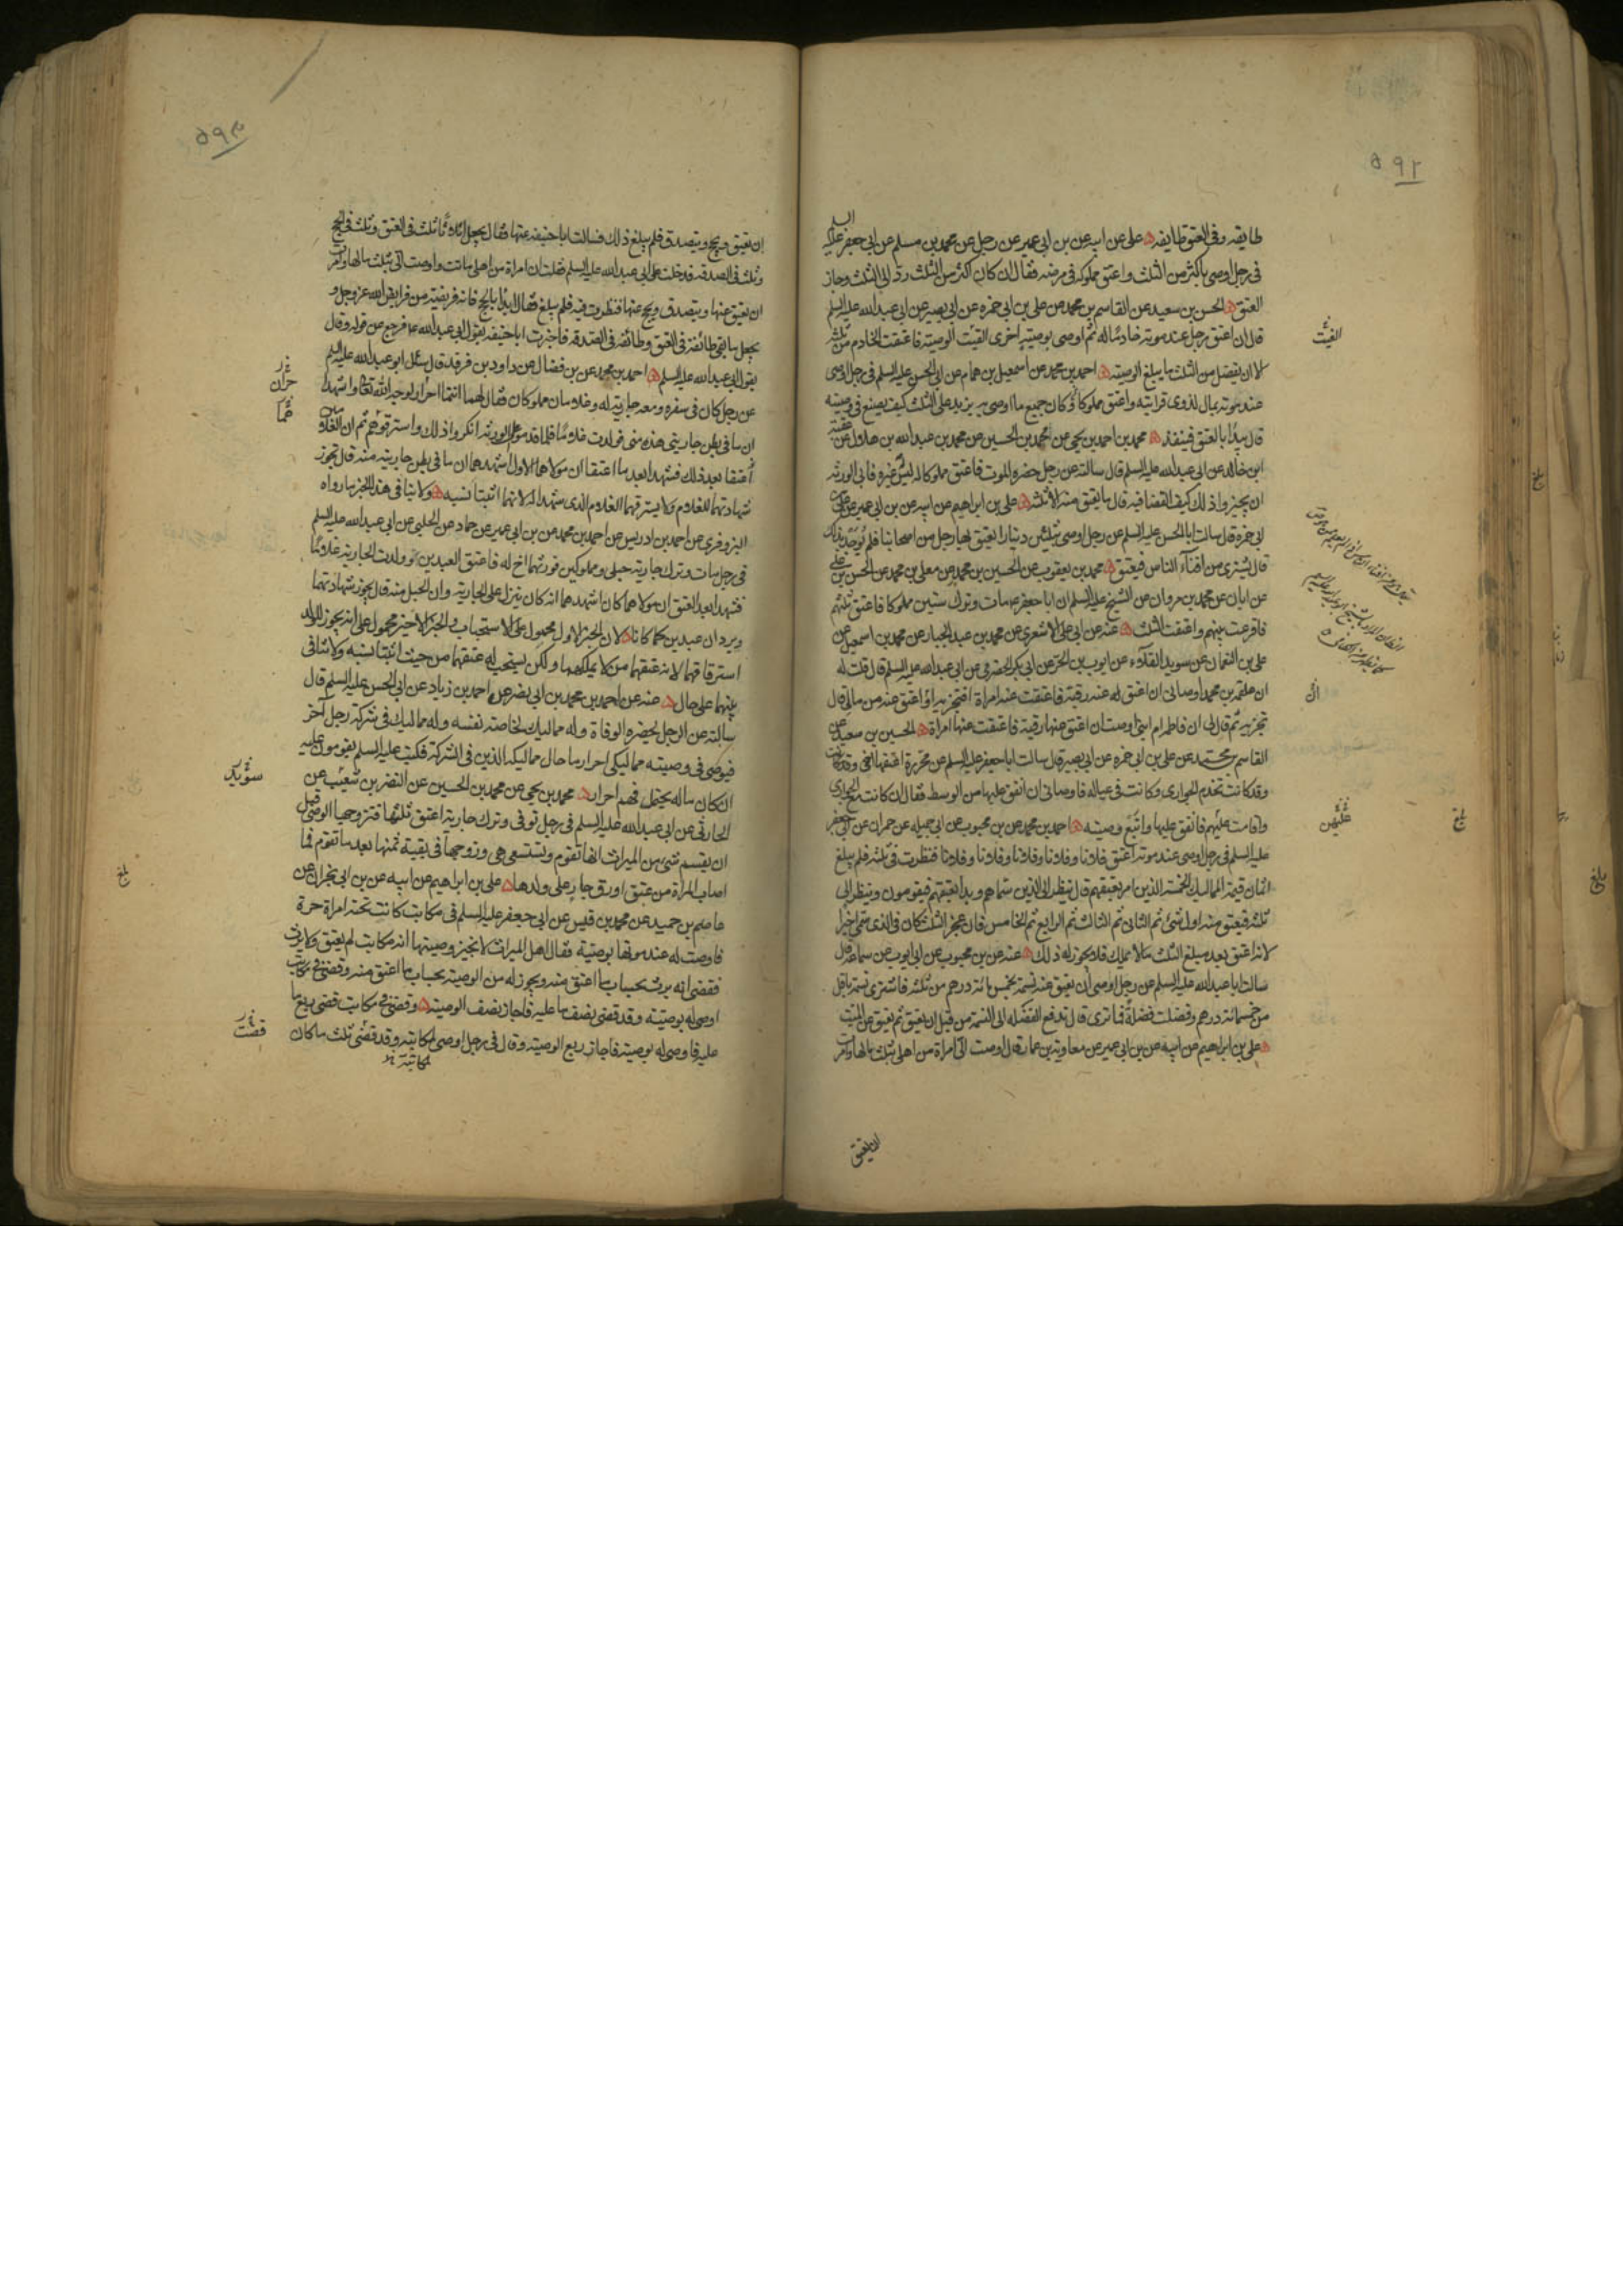 ٥٩٢
طايفه وفى العتق طايفه ه على عن ابيه عن بن ابى عمير عن رجل عن محمد بن مسلم عن ابى جعفر عليه السلم
فى رجل اوصى باكثر من الثلث واعتق مملوكه فى مرضه فقال ان كان اكثر من الثلث رد الى الثلث وجاز
العتق ه الحسن بن سعيد عن القاسم بن محمد عن على بن ابى حمزه عن ابى بصير عن ابى عبد الله عليه السلم
قال ان اعتق رجل عند موته خادما له ثم اوصى بوصيته اخرى الغيت الوصيته فاعتقت الخادم من ثلثه
الا ان يفضل من الثلث ما يبلغ الوصيته ه احمد بن محمد عن اسمعيل بن همام عن ابى الحسن عليه السلم فى رجل اوصى
عند موته بمال لذوى قرابته واعتق مملوكا وكان جميع ما اوصى به يزيد على الثلث كيف يصنع فى وصيته
قال يبدأ بالعتق فينفذ ه محمد بن احمد بن يحيى عن محمد بن الحسين عن محمد بن عبد الله بن هلال عن عقبة
ابن خالد عن ابى عبد الله عليه السلم قال سالته عن رجل حضره الموت فاعتق مملوكا له ليس غيره فابى الورثه
ان يجيزوا ذلك كيف القضا فيه قال ما يعتق منه الا ثلثه ه على بن ابراهيم عن ابيه عن بن ابى عمير عن على بن
ابى حمزه قال سالت ابا الحسن عليه السلم عن رجل اوصى بثلثين دينارا يعتق بها رجل من اصحابنا فلم يوجد بذلك
قال يشترى من افناء الناس فيعتق ه محمد بن يعقوب عن الحسين بن محمد عن معلى بن محمد عن الحسن بن على
عن ابان عن محمد بن مروان عن الشيخ عليه السلم ان ابا جعفر ع مات وترك ستين مملوكا فاعتق ثلثهم
فاقرعت بينهم واعتقت الثلث ه عنه عن ابى على الاشعرى عن محمد بن عبد الجبار عن محمد بن اسمعيل عن
على بن النعمان عن سويد القلاء عن ايوب بن الحر عن ابى بكر الحضرمى عن ابى عبد الله عليه السلم قال قلت له
ان علقمه بن محمد اوصانى ان اعتق له عنه رقبة فاعتقت عنه امراة افتجزيه او اعتق عنه من مالى قال
تجزيه ثم قال لى ان فاطم ام ابنى اوصت ان اعتق عنها رقبة فاعتقت عنها امراة ه الحسين بن سعيد عن
القاسم بن محمد عن على بن ابى حمزه عن ابى بصير قال سالت ابا جعفر عليه السلم عن محررة اعتقها اخى
وقد كانت تخدم الجوارى وكانت فى عياله فاوصانى ان انفق عليها من الوسط فقال ان كانت مع الجوارى
واقامت عليهم فانفق عليها واتبع وصيته ه احمد بن محمد عن بن محبوب عن ابى جميله عن حمران عن ابى جعفر
عليه السلم فى رجل اوصى عند موته اعتق فلانا وفلانا وفلانا وفلانا وفلانا فنظرت فى ثلثه فلم يبلغ
اثمان قيمة المماليك الخمسة الذين امر بعتقهم قال ينظر الى الذين سماهم ويبدا بعتقهم فيقومون وينظر الى
ثلثه فيعتق منه اول شئ ثم الثانى ثم الثالث ثم الرابع ثم الخامس فان عجز الثلث كان فى الذى سمى اخيرا
لانه اعتق بعد مبلغ الثلث ما لا يملك فلا يجوز له ذلك ه عنه عن بن محبوب عن ابى ايوب عن سماعه قال
سالت ابا عبد الله عليه السلم عن رجل اوصى ان يعتق عنه نسمة بخمس مائة درهم من ثلثه فاشترى نسمة باقل
من خمسمائة درهم وفضلت فضلة فما ترى قال تدفع الفضله الى النسمة من قبل ان يعتق ثم يعتق عن الميت
ه على بن ابراهيم عن ابيه عن بن ابى عمير عن معاوية بن عمار قال اوصت الى امراة من اهلى بثلث مالها وامرت
ان يعتق
الغيت
ان
بلغ
٥٩٣
ان يعتق ويحج ويتصدق فلم يبلغ ذلك فسالت ابا حنيفه عنها فقال يجعل اثلاثا ثلث فى العتق وثلث فى الحج
وثلث فى الصدقه فدخلت على ابى عبد الله عليه السلم فقلت ان امراة من اهلى ماتت واوصت الى بثلث مالها وامرت
ان يعتق عنها ويتصدق ويحج عنها فنظرت فيه فلم يبلغ فقال ابدا بالحج فانه فريضة من فرايض الله عز وجل و
يجعل ما بقى طائفة فى العتق وطائفه فى الصدقه فاخبرت ابا حنيفه بقول ابى عبد الله ع فرجع عن قوله وقال
بقول ابى عبد الله عليه السلم ه احمد بن محمد عن بن فضال عن داود بن فرقد قال سئل ابو عبد الله عليه السلم
عن رجل كان فى سفره ومعه جارية له وغلامان مملوكان فقال لهما انتما احرار لوجه الله تعالى واشهدا
ان ما فى بطن جاريتى هذه منى فولدت غلاما فلما قدموا على الورثه انكروا ذلك واسترقوهم ثم ان الغلامين
اعتقا بعد ذلك فشهدا بعد ما اعتقا ان مولاهما الاول اشهدهما ان ما فى بطن جاريته منه قال تجوز
شهادتهما للغلام ولا يسترقهما الغلام الذى شهدا له لانهما اثبتا نسبه ه ولا ينافى هذا الخبر ما رواه
البزوفرى عن احمد بن ادريس عن احمد بن محمد عن بن ابى عمير عن حماد عن الحلبى عن ابى عبد الله عليه السلم
فى رجل مات وترك جارية حبلى ومملوكين فورثهما اخ له فاعتق العبدين وولدت الجارية غلاما
فشهدا بعد العتق ان مولاهما كان اشهدهما انه كان ينزل على الجارية وان الحبل منه قال يجوز شهادتهما
ويردان عبدين كما كانا ه لان الخبر الاول محمول على الاستحباب والخبر الاخير محمول على انه يجوز للولد
استرقاقهما لانه عتقهما من لا يملكهما ولكن يستحب له عتقهما من حيث اثبتا نسبه ولا تنافى
بينهما على حال ه عنه عن احمد بن محمد بن ابى نصر عن احمد بن زياد عن ابى الحسن عليه السلم قال
سالته عن الرجل يحضره الوفاة وله مماليك لخاصة نفسه وله مماليك فى شركة رجل آخر
فيوصى فى وصيته مماليكى احرار ما حال مماليكه الذين فى الشركة فكتب عليه السلم يقومون عليه
ان كان ماله يحتمل فهم احرار ه محمد بن يحيى عن محمد بن الحسين عن النضر بن شعيب عن
الحارثى عن ابى عبد الله عليه السلم فى رجل توفى وترك جارية اعتق ثلثها فتزوجها الوصى قبل
ان يقسم شئ من الميراث انها تقوم وتستسعى هى وزوجها فى بقية ثمنها بعد ما تقوم فما
اصاب المراة من عتق او رق جاز على ولدها ه على بن ابراهيم عن ابيه عن بن ابى نجران عن
عاصم بن حميد عن محمد بن قيس عن ابى جعفر عليه السلم فى مكاتب كانت تحته امراة حرة
فاوصت له عند موتها بوصية فقال اهل الميراث لا نجيز وصيتها انه مكاتب لم يعتق ولا يرث
فقضى انه يرث بحساب ما اعتق منه ويجوز له من الوصية بحساب ما اعتق منه وقضى فى مكاتب
اوصى له بوصية وقد قضى نصف ما عليه فاجاز نصف الوصية ه وقضى فى مكاتب قضى ربع ما
عليه فاوصى له بوصية فاجاز ربع الوصية وقال فى رجل اوصى لمكاتبته وقد قضى ثلث ما كان
سويد
قضت
بلغ